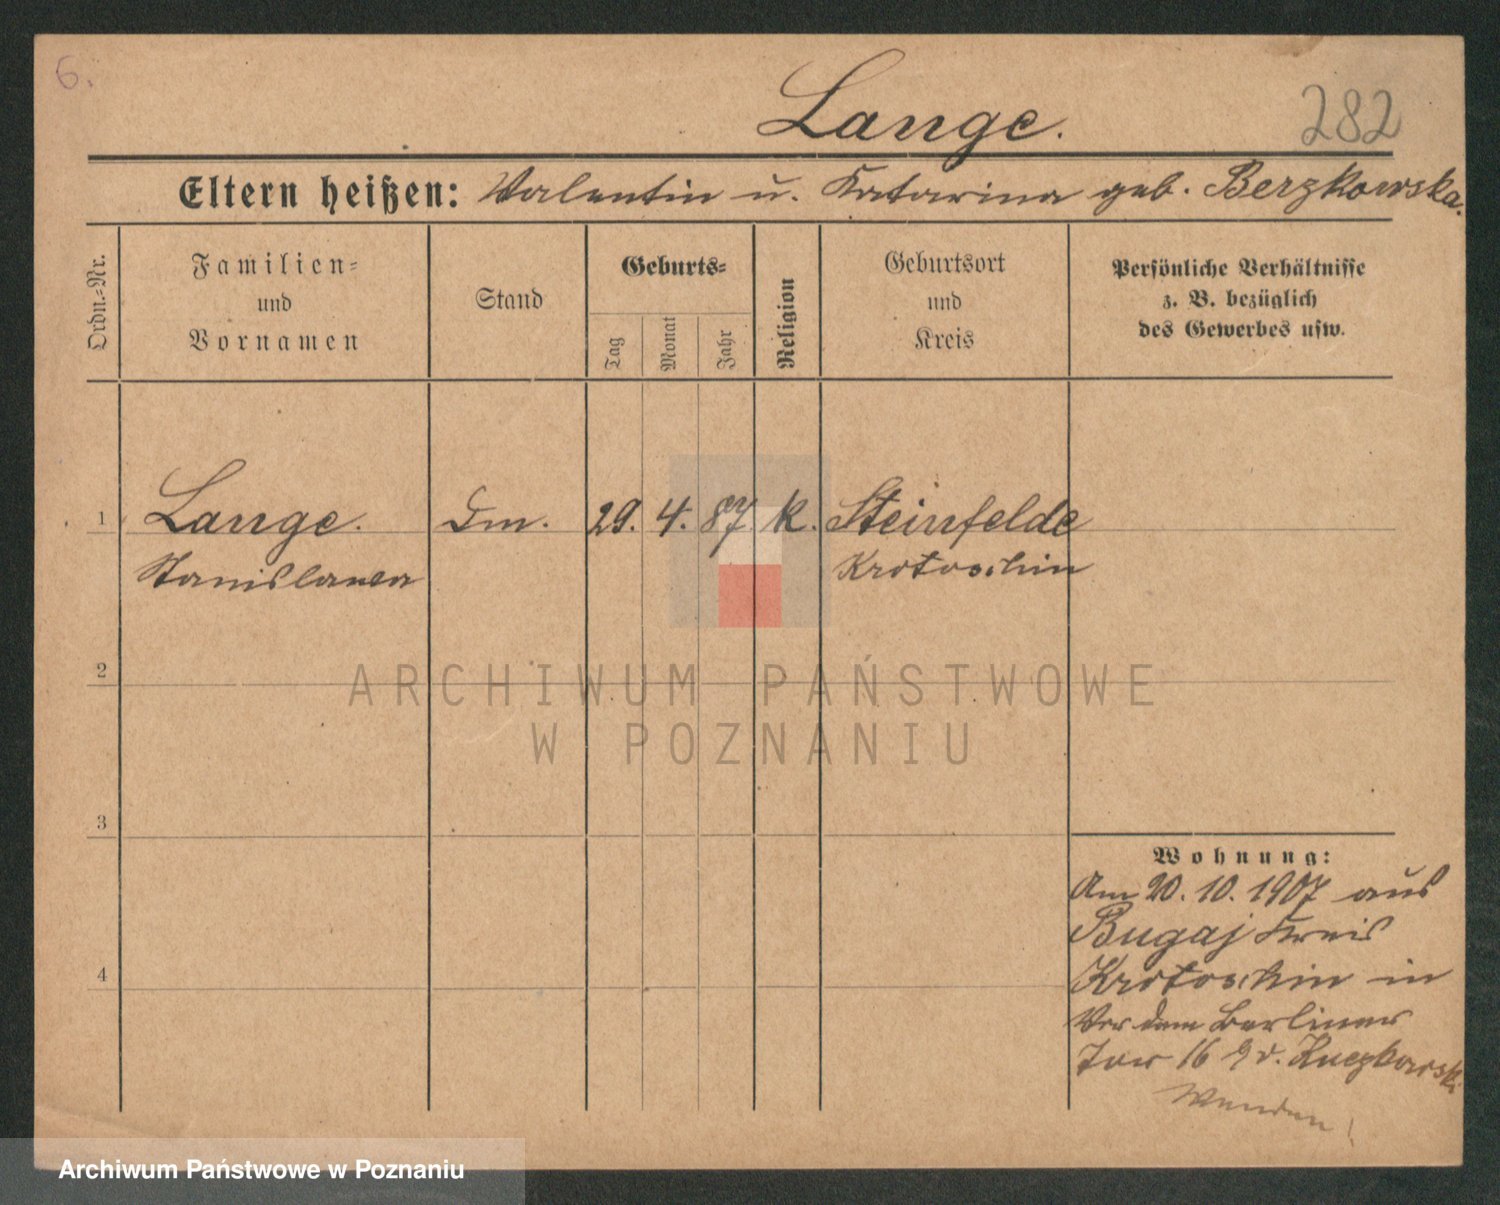 6.
Lange.
282
Eltern heißen: Valentin u. Katarina geb. Berzkowska.
Ordn.-Nr.
Familien-
und
Vornamen
Stand
Geburts-
Tag
Monat
Jahr
Religion
Geburtsort
und
Kreis
Persönliche Verhältnisse
z. B. bezüglich
des Gewerbes usw.
1 Lange. 29. 4. 87 k. Steinfelde
Stanislawa Krotoschin
2
3
4
Wohnung:
Am 20. 10. 1907 aus
Bugaj Kreis
Krotoschin in
Vor dem Berliner
Tor 16 Kuczkowski
Wenden!
ARCHIWUM PAŃSTWOWE
W POZNANIU
Archiwum Państwowe w Poznaniu